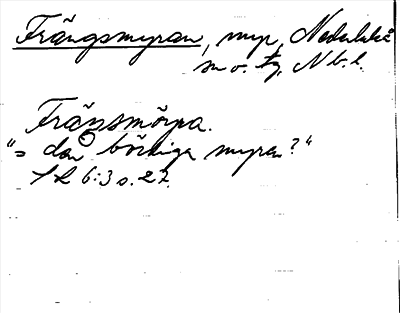 Frängsmyran, myr, Nederluleå
sn o. tg, Nb.l.
Frängsmöra.
"= den böckiga myren?"
SL 6:3 s. 27.